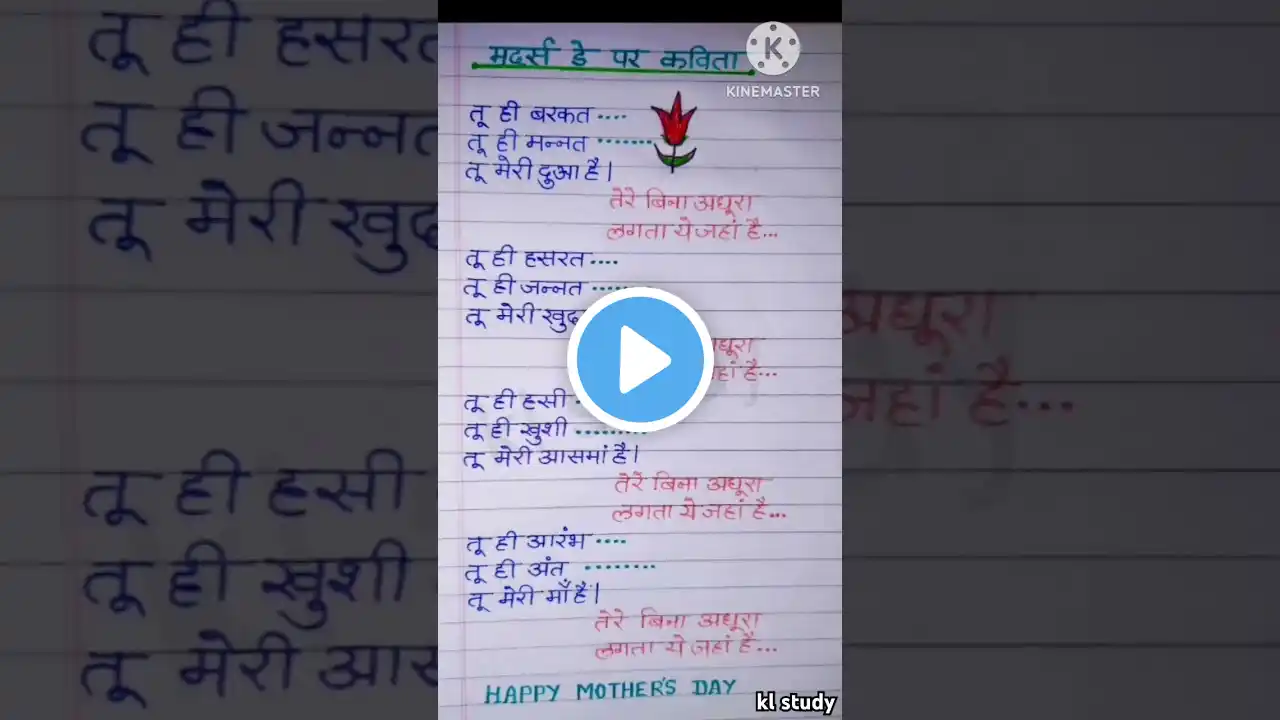 मदर्स डे पर कविता
KINEMASTER
तू ही बरकत ....
तू ही मन्नत .......
तू मेरी दुआ है।
तेरे बिना अधूरा
लगता ये जहां है...
तू ही हसरत ....
तू ही जन्नत ......
तू मेरी
धूरा
हां है...
तू ही हसी
तू ही खुशी .........
तू मेरी आसमां है।
तेरे बिना अधूरा
लगता ये जहां है...
तू ही आरंभ ....
तू ही अंत ........
तू मेरी माँ है।
तेरे बिना अधूरा
लगता ये जहां है...
HAPPY MOTHER'S DAY
kl study
तू ही हसरत
तू ही जन्नत
तू मेरी
अधूरा
जहां है...
तू ही हसी
तू ही खुशी
तू मेरी